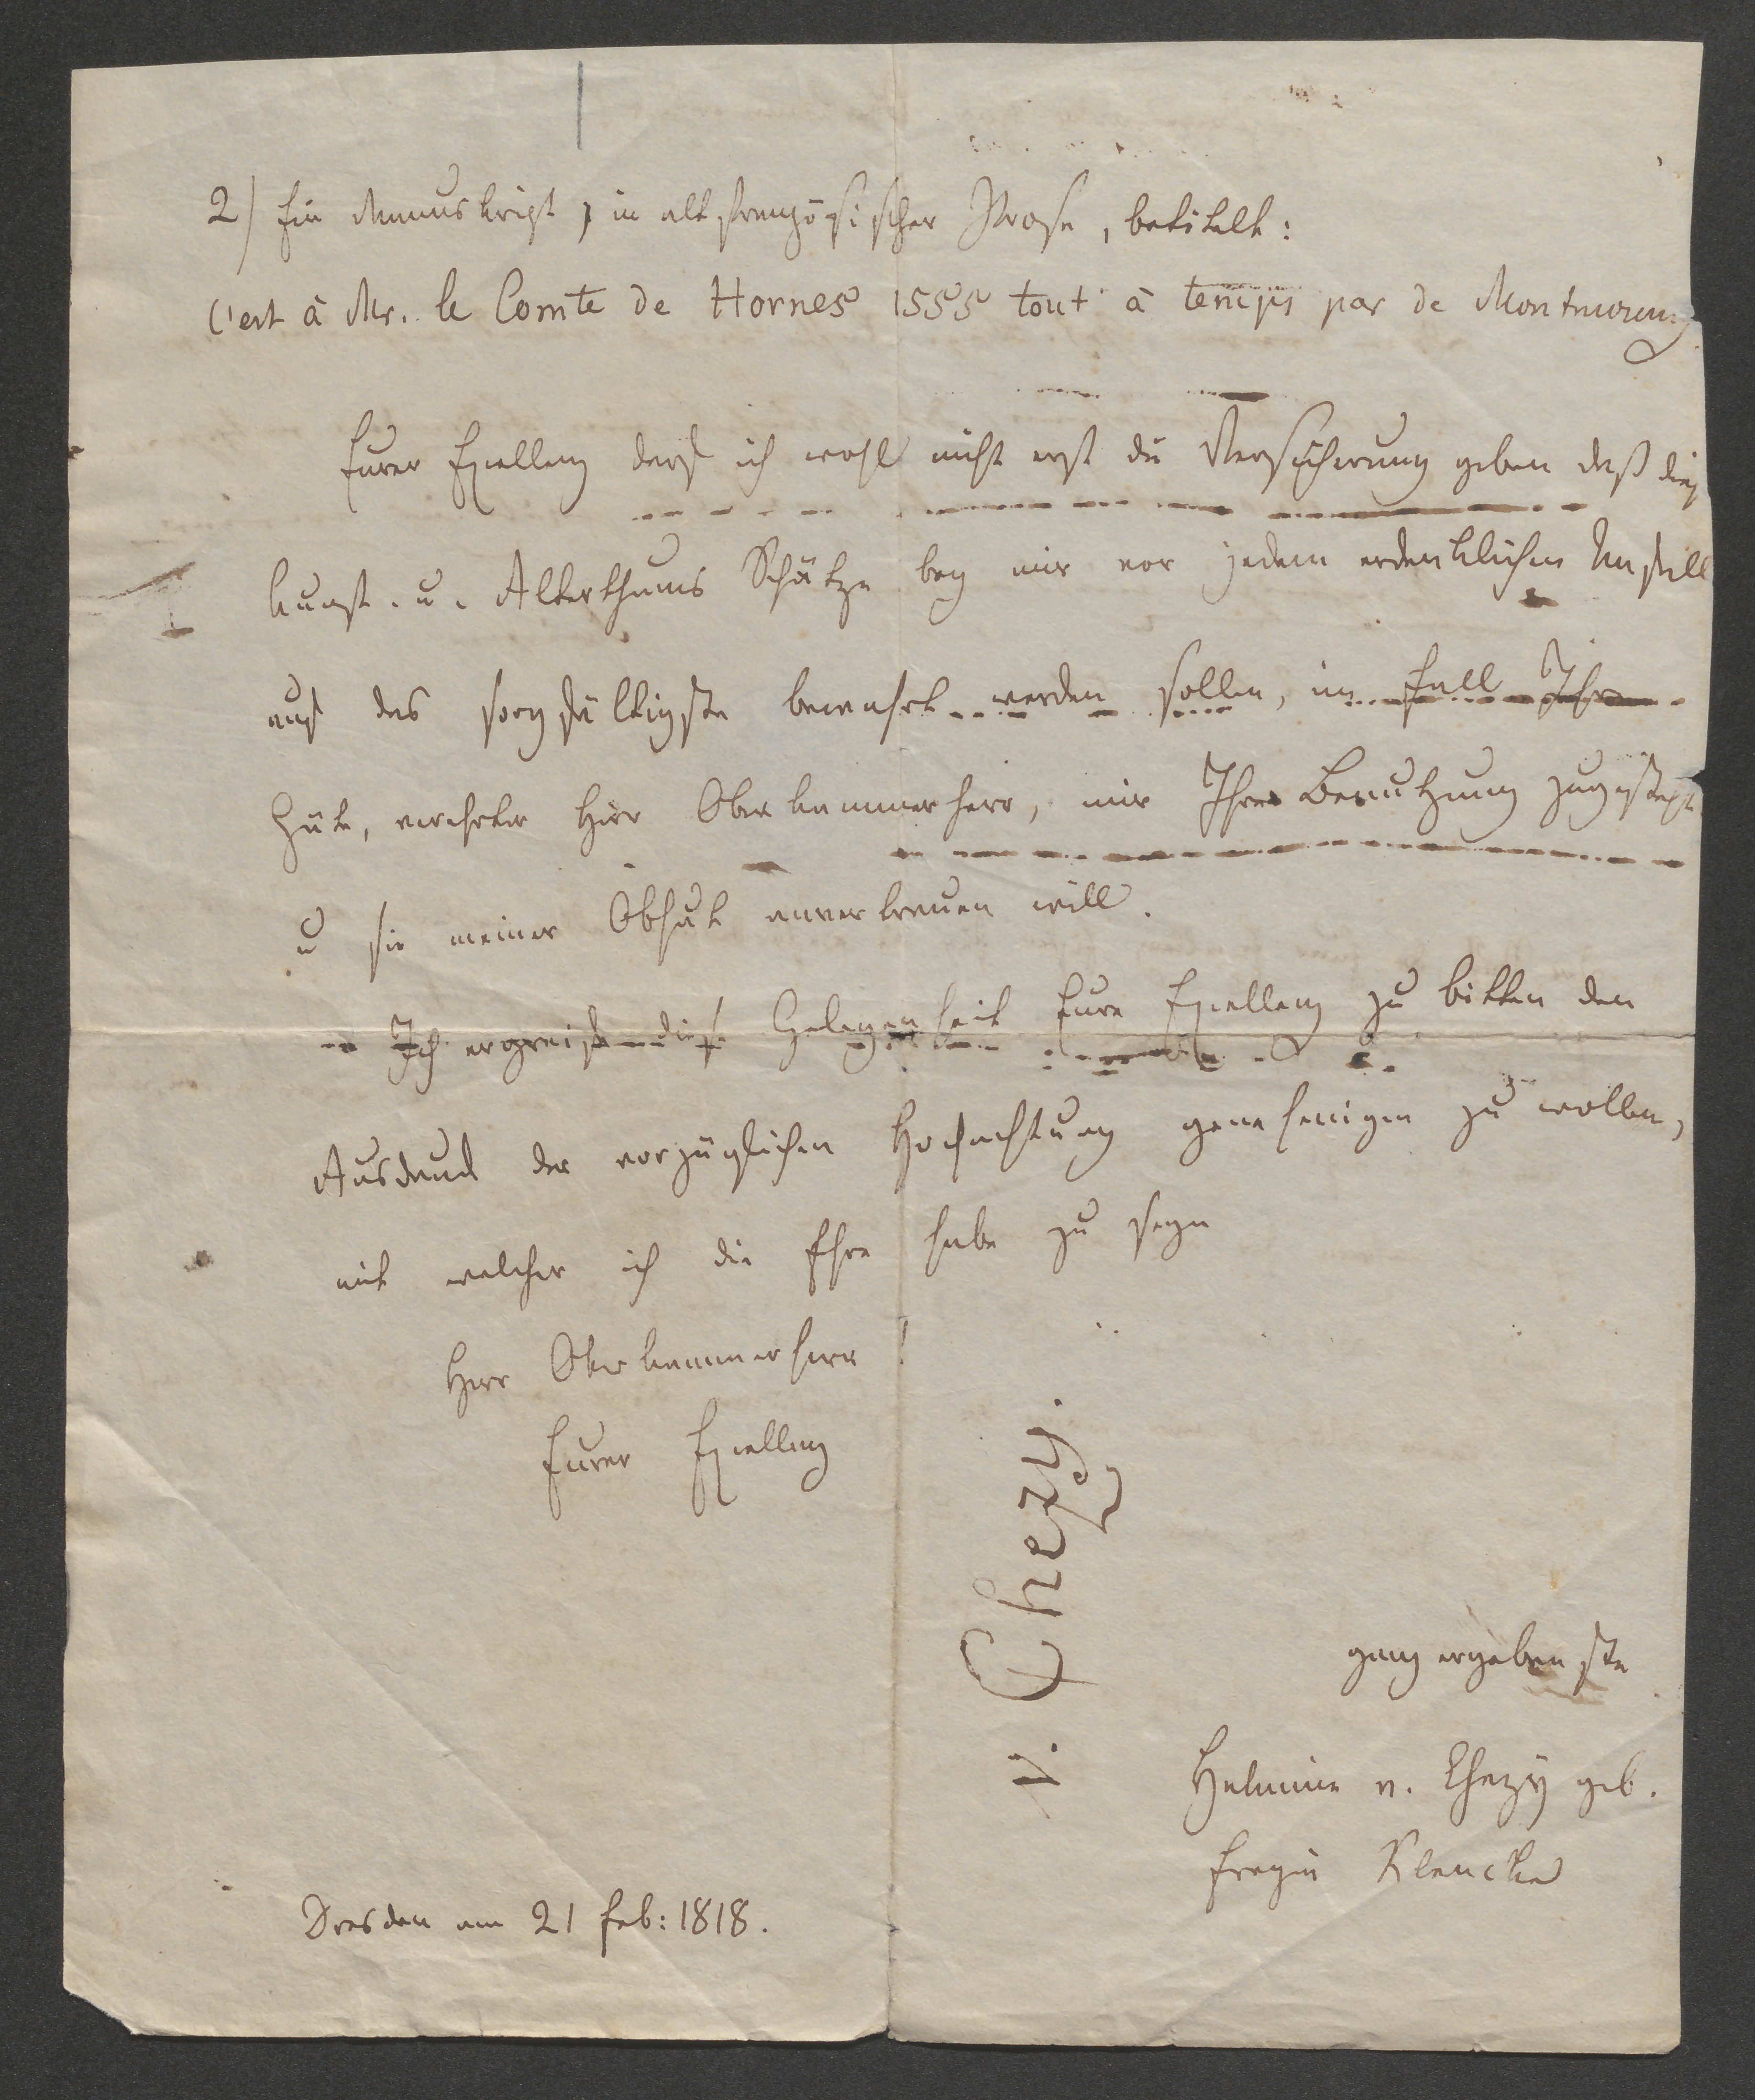 2) Ein Manuskript, in altfranzösischer Prosa, betitelt:
C'est à Mr. le Comte de Hornes 1555 tout à temps par de Montmorency
Eurer Exzellenz darf ich wohl nicht erst die Versicherung geben daß diese
Kunst- u. Alterthums Schätze bey mir vor jedem erdenklichen Unfall
auf das sorgfältigste bewahrt werden sollen, im Fall Ihre
Güte, verehrter Herr Oberkammerherr, mir Ihre Benutzung zugesteht
u sie meiner Obhut anvertrauen will.
Ich ergreife diese Gelegenheit Eure Exzellenz zu bitten den
Ausdruck der vorzüglichen Hochachtung genehmigen zu wollen,
mit welcher ich die Ehre habe zu seyn
Herr Oberkammerherr!
Eurer Exzellenz
ganz ergebenste
Helmina v. Chezy geb.
Freyin Klencke
Dresden am 21 Feb: 1818.
v. Chezy.